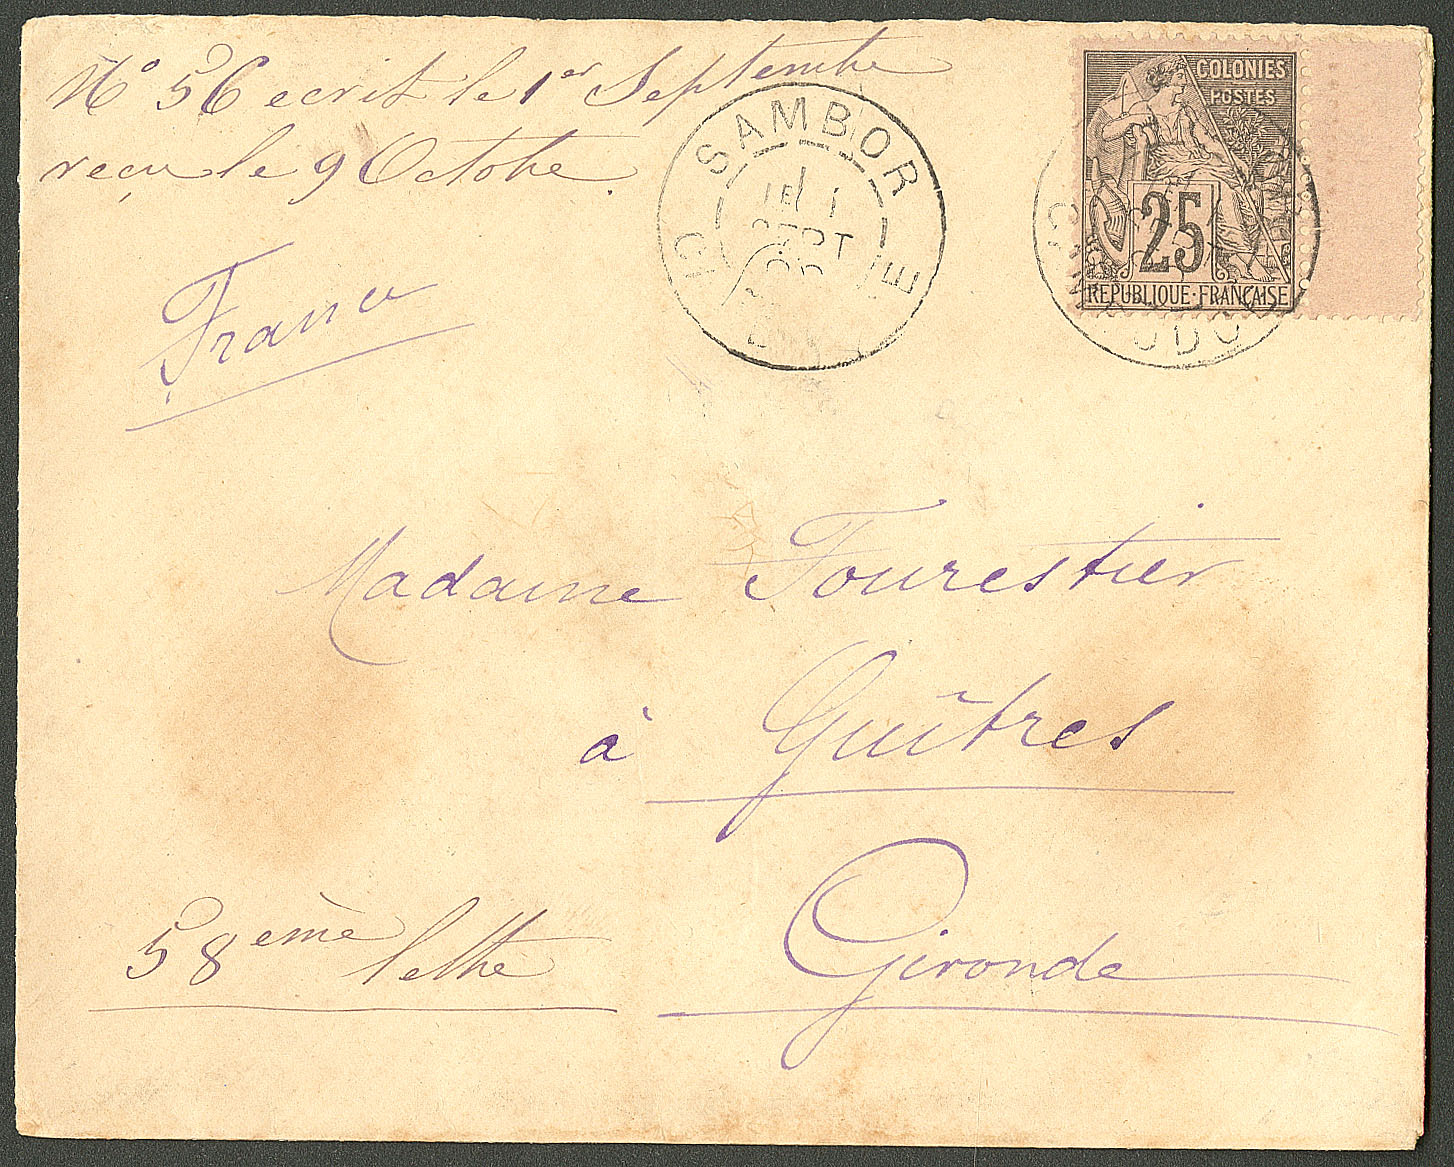 No 56 ecrit le 1er Septembre
reçu le 9 Octobre
France
SAMBOR
1
SEPT
COLONIES
POSTES
25
REPUBLIQUE·FRANÇAISE
Madame Fourestier
à Guîtres
Gironde
58ème lettre